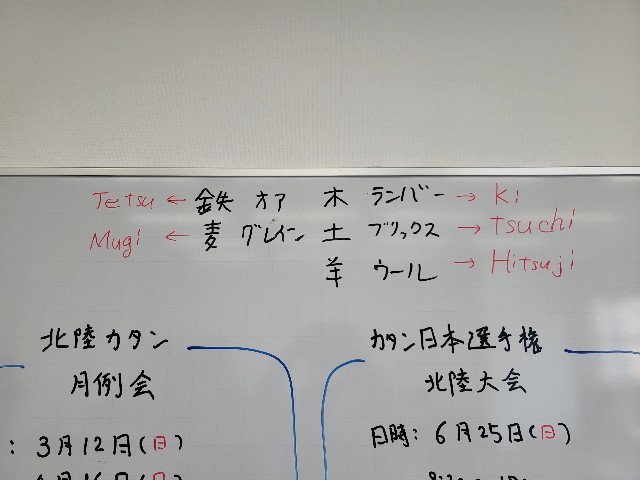 Tetsu ← 鉄 オア 木 ランバー → Ki
Mugi ← 麦 グレイン 土 ブリックス → tsuchi
羊 ウール → Hitsuji
北陸カタン
月例会
: 3月12日(日)
カタン日本選手権
北陸大会
日時: 6月25日(日)